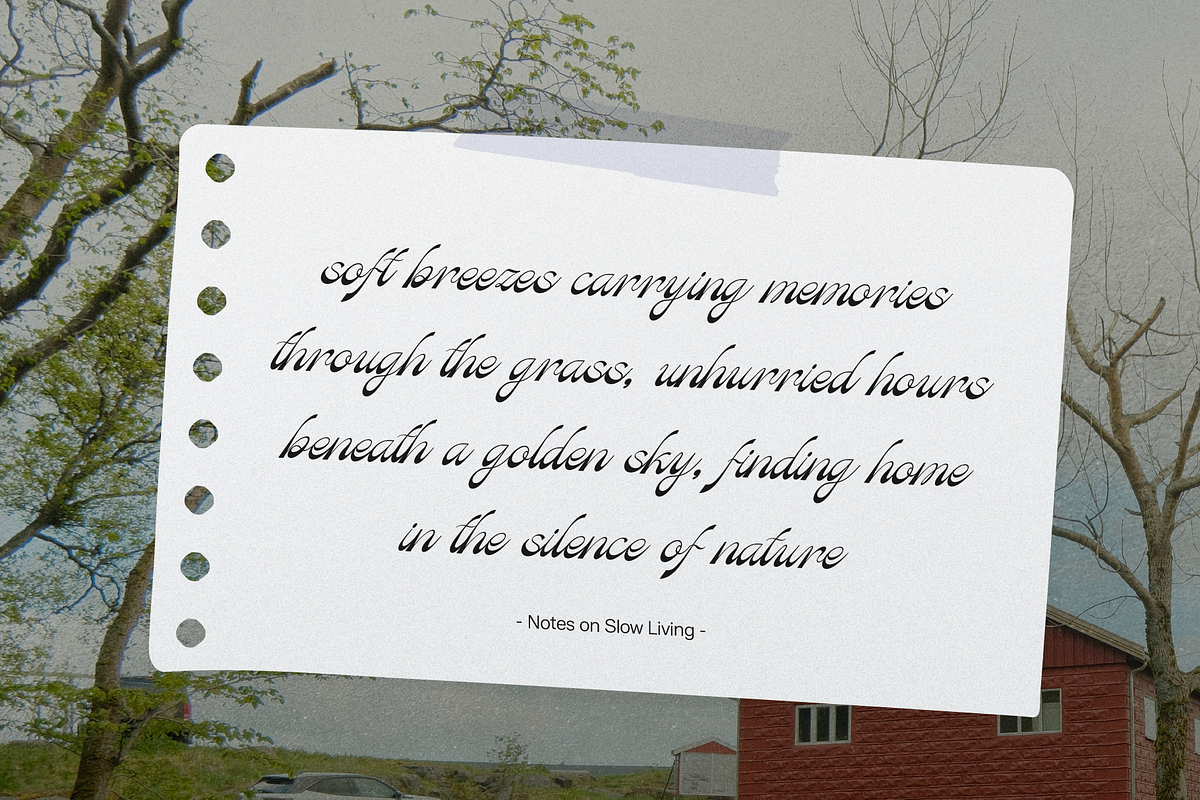 soft breezes carrying memories
through the grass, unhurried hours
beneath a golden sky, finding home
in the silence of nature
- Notes on Slow Living -